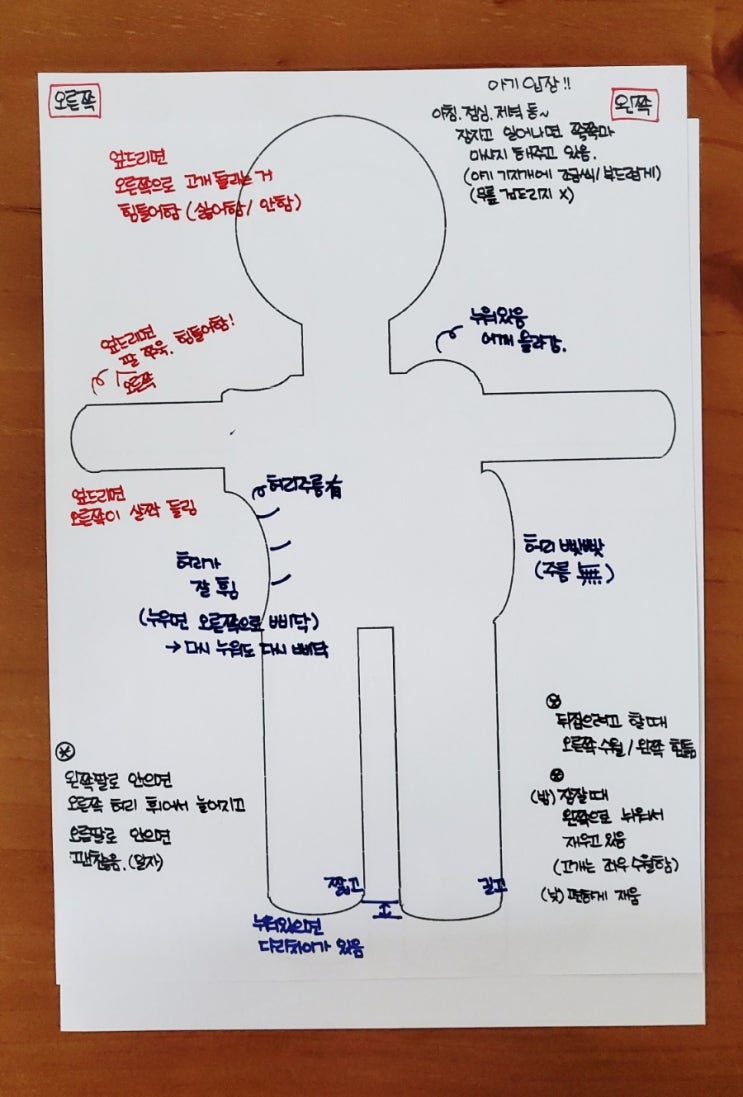 오른쪽
왼쪽
아기 입장!!
아침, 점심, 저녁 동~
잠자고 일어나면 쭉쭉마
마사지 해주고 있음.
(아기 기지개에 조금씩/부드럽게)
(무릎 건드리지 X)
엎드리면
오른쪽으로 고개 돌리는 거
힘들어함 (싫어함/안함)
누워있음
어깨 올라감.
엎드리면
팔 쭈욱. 힘들어함!
오른쪽
엎드리면
오른쪽이 살짝 들림
허리주름 有
허리가
잘 휨
(누우면 오른쪽으로 삐딱)
→ 다시 누워도 다시 삐딱
허리 빳빳
(주름 無)
왼쪽팔로 안으면
오른쪽 허리 휘어서 늘어지고
오른팔로 안으면
괜찮음. (일자)
뒤집으려고 할 때
오른쪽 수월/왼쪽 힘듦
(밤) 잠잘 때
왼쪽으로 눕혀서
재우고 있음
(고개는 좌우 수월함)
(낮) 편하게 재움
짧고
길고
누워있으면
다리차이가 있음